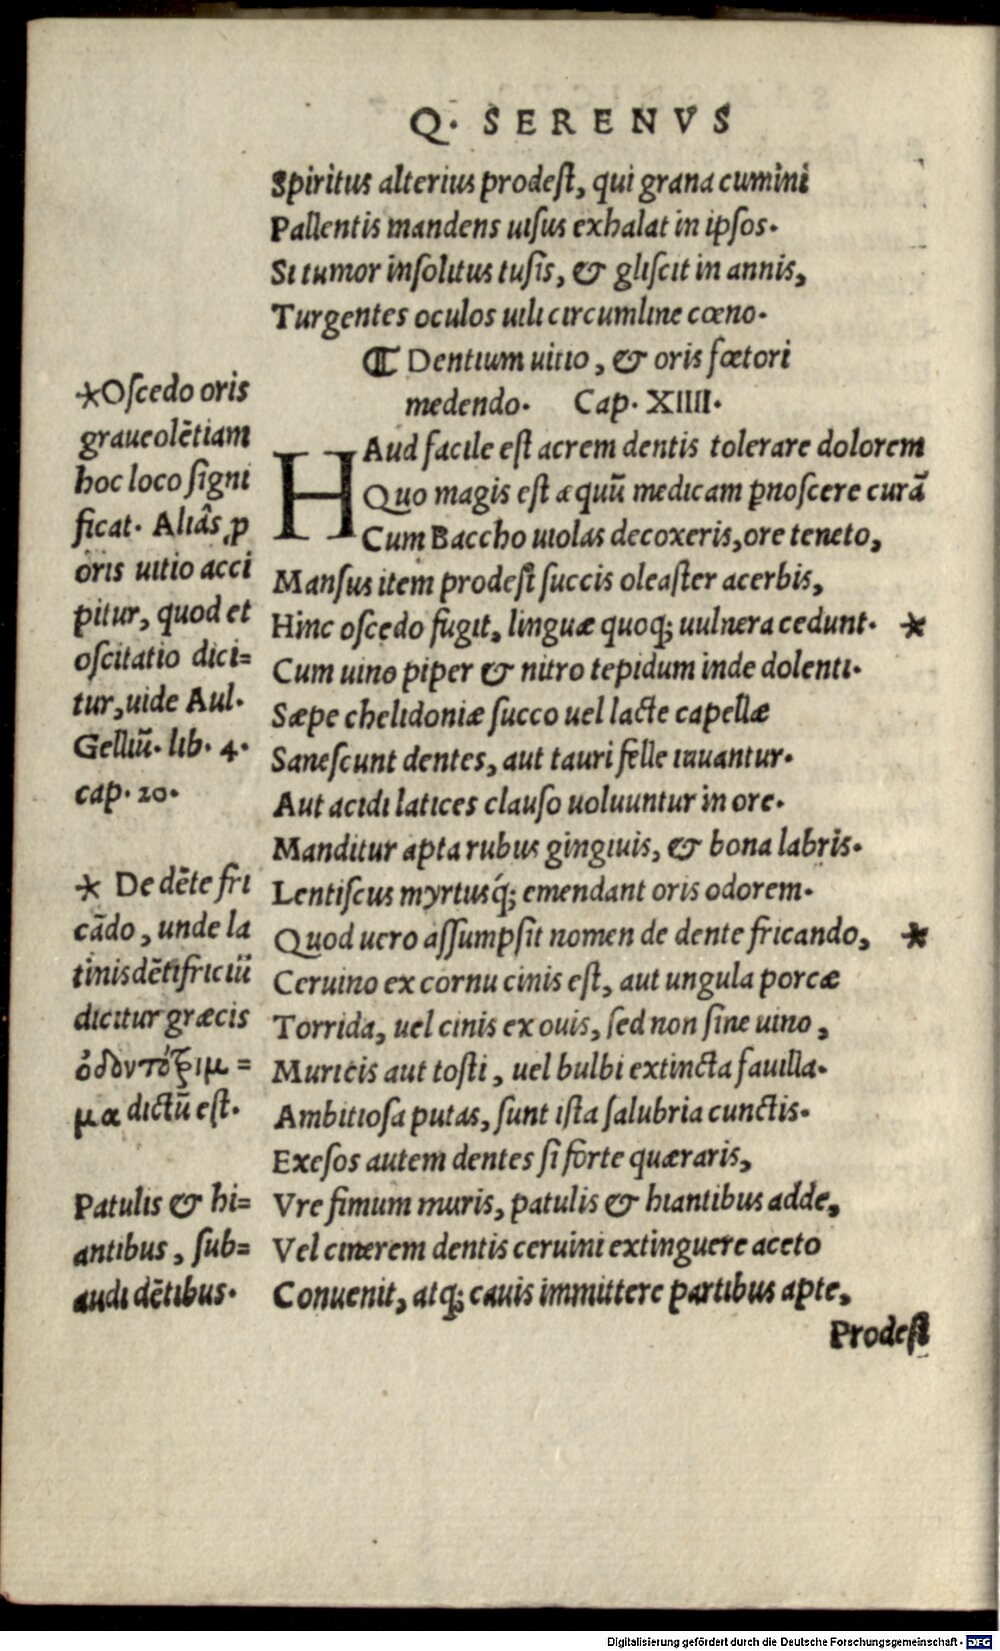 Q. SERENVS
Spiritus alterius prodest, qui grana cumini
Pallentis mandens uisus exhalat in ipsos.
Si tumor insolitus tusis, & gliscit in annis,
Turgentes oculos uili circumline cœno.
¶ Dentium uitio, & oris fœtori
medendo. Cap. XIIII.
HAud facile est acrem dentis tolerare dolorem
Quo magis est æquũ medicam p̱noscere curã
Cum Baccho uiolas decoxeris, ore teneto,
Mansus item prodest succis oleaster acerbis,
Hinc oscedo fugit, linguæ quoq; uulnera cedunt. *
Cum uino piper & nitro tepidum inde dolenti.
Sæpe chelidoniæ succo uel lacte capellæ
Sanescunt dentes, aut tauri felle iuuantur.
Aut acidi latices clauso uoluuntur in ore.
Manditur apta rubus gingiuis, & bona labris.
Lentiscus myrtusq́; emendant oris odorem.
Quod uero assumpsit nomen de dente fricando, *
Ceruino ex cornu cinis est, aut ungula porcæ
Torrida, uel cinis ex ouis, sed non sine uino,
Muricis aut tosti, uel bulbi extincta fauilla.
Ambitiosa putas, sunt ista salubria cunctis.
Exesos autem dentes si forte quæraris,
Vre fimum muris, patulis & hiantibus adde,
Vel cinerem dentis ceruini extinguere aceto
Conuenit, atq; cauis immittere partibus apte,
Prodest
*Oscedo oris
graueolẽtiam
hoc loco signi
ficat. Aliâs, p
oris uitio acci
pitur, quod et
oscitatio dici=
tur, uide Aul.
Gelliũ. lib. 4.
cap. 20.
* De dẽte fri
cãdo, unde la
tinis dẽtifriciũ
dicitur græcis
ὀδοντότριμ=
μα dictũ est.
Patulis & hi=
antibus, sub=
audi dẽtibus.
Digitalisierung gefördert durch die Deutsche Forschungsgemeinschaft - DFG